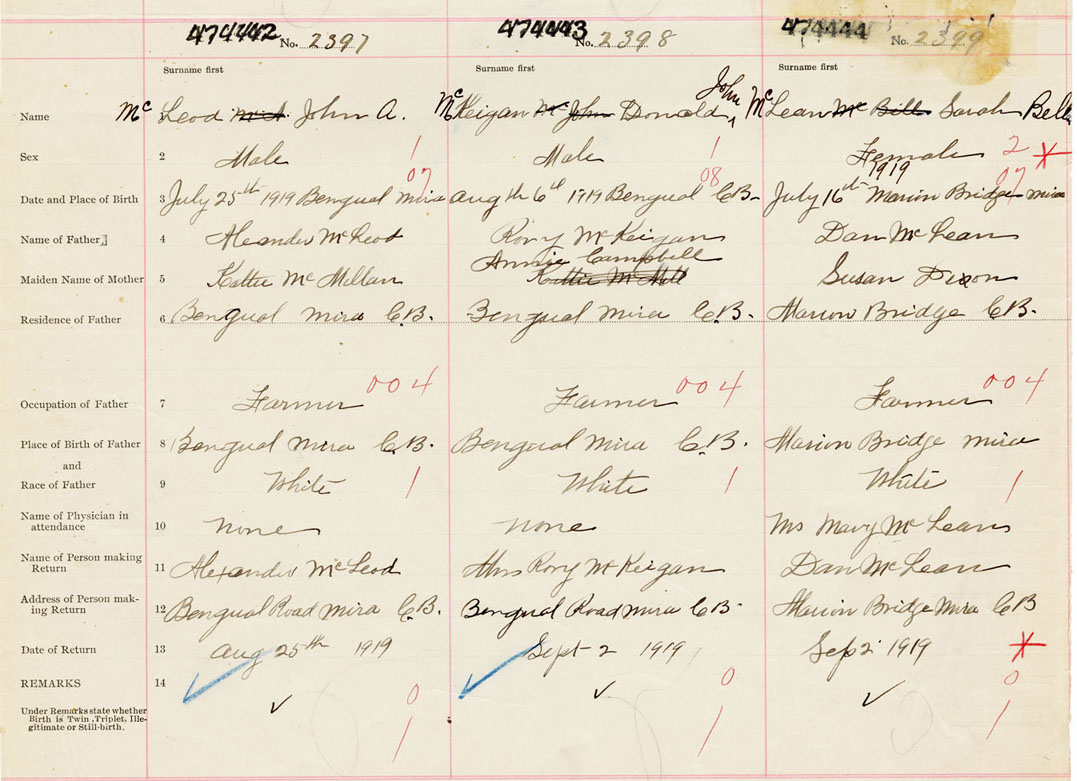 474442 No. 2397 474443 No. 2398 474444 No. 2399
Surname first Surname first Surname first
Name Mc Leod John A. Mc Keigan Mc John Donald John Mc Lean Mc Bell Sarah Bell
Sex 2 Male 1 Male 1 Female 2 *
07 08 1919 07
Date and Place of Birth 3 July 25th 1919 Bengual Mira Augth 6th 1919 Bengual C.B. July 16th Marion Bridge Mira
Name of Father 4 Aleander McLeod Rory McKeigan Dan McLean
Annie Campbell
Maiden Name of Mother 5 Kattie McMillan Kattie McMill Susan Dixon
Residence of Father 6 Bengual Mira C.B. Bengual Mira C.B. Marion Bridge C.B.
004 004 004
Occupation of Father 7 Farmer Farmer Farmer
Place of Birth of Father 8 Bengual Mira C.B. Bengual Mira C.B. Marion Bridge Mira
and
Race of Father 9 White 1 White 1 White 1
Name of Physician in
attendance 10 none none Ms Mary McLean
Name of Person making
Return 11 Alexander McLeod Mrs Rory McKeigan Dan McLean
Address of Person mak-
ing Return 12 Bengual Road Mira C.B. Bengual Road Mira C.B. Marion Bridge Mira C B
Date of Return 13 Aug 25th 1919 Sept 2 1919 Sep 2 1919 *
REMARKS 14 0 0 0
Under Remarks state whether
Birth is Twin, Triplet, Ille-
gitimate or Still-birth. 1 1 1